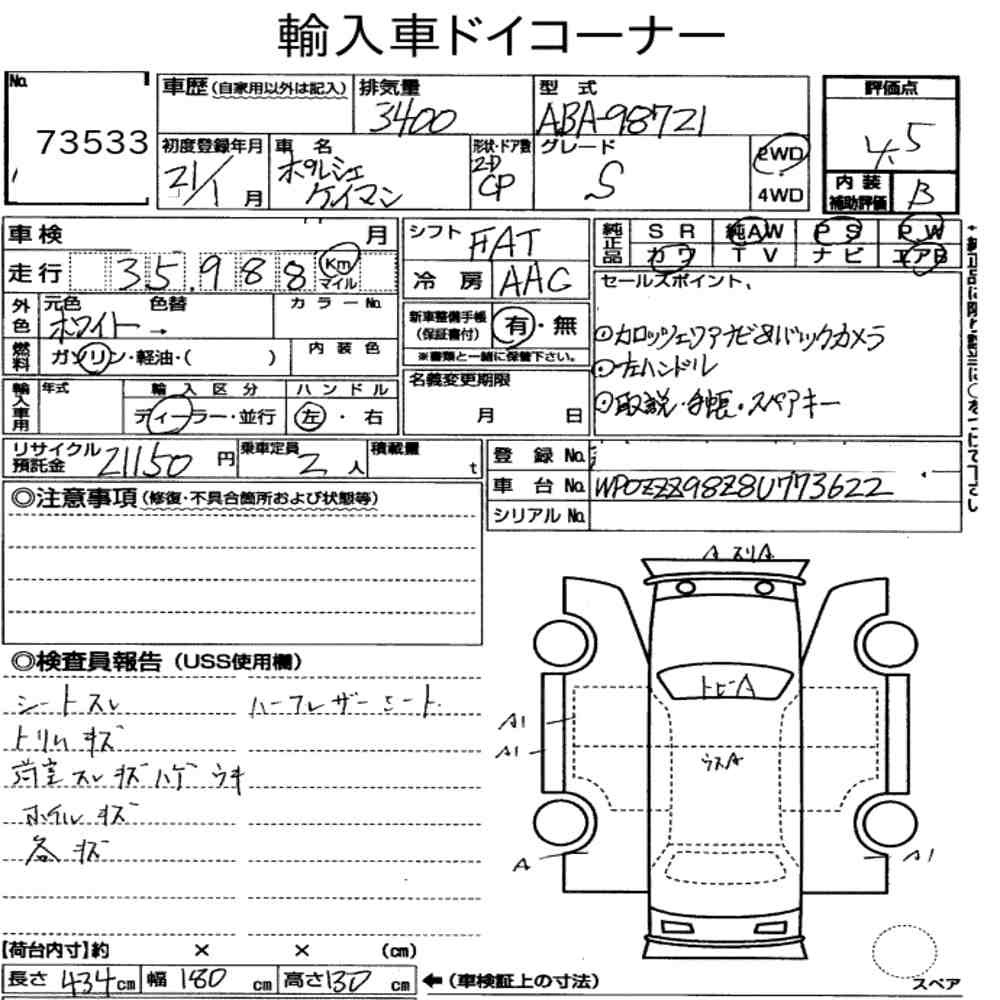 輸入車ドイコーナー
No. 73533
車歴(自家用以外は記入) 排気量 3400 型式 ABA-98721
評価点 4.5
初度登録年月 21/1月 車名 ポルシェ ケイマン 形状・ドア数 2D CP グレード S 2WD 4WD
内装補助評価 B
車検 月
走行 35,988 Km マイル
シフト FAT
冷房 AAC
純正品 SR 純AW PS PW
カワ TV ナビ エアB
外色 元色 色替 カラーNo.
ホワイト→
燃料 ガソリン・軽油・( ) 内装色
新車整備手帳(保証書付) 有・無
※書類と一緒に保管下さい。
セールスポイント、
⊙カロッツェリアナビ&バックカメラ
⊙左ハンドル
⊙取説・手帳・スペアキー
輸入車用 年式 輸入区分 ハンドル
ディーラー・並行 左・右
名義変更期限
月 日
リサイクル預託金 21150円 乗車定員 2人 積載量 t
登録No.
車台No. WP0ZZZ98Z8U773622
シリアルNo.
◎注意事項(修復・不具合箇所および状態等)
◎検査員報告(USS使用欄)
シートスレ ハーフレザーシート
トリムキズ
荷室スレキズハゲウキ
ホイルキズ
各キズ
A スリA
トビA
A1
A1
ウスA
A
A1
スペア
【荷台内寸】約 × × (cm)
長さ 434cm 幅 180cm 高さ 130cm ←(車検証上の寸法)